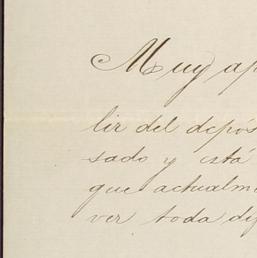 Muy ap
lir del depós
sado y está
que actualm
ver toda dif